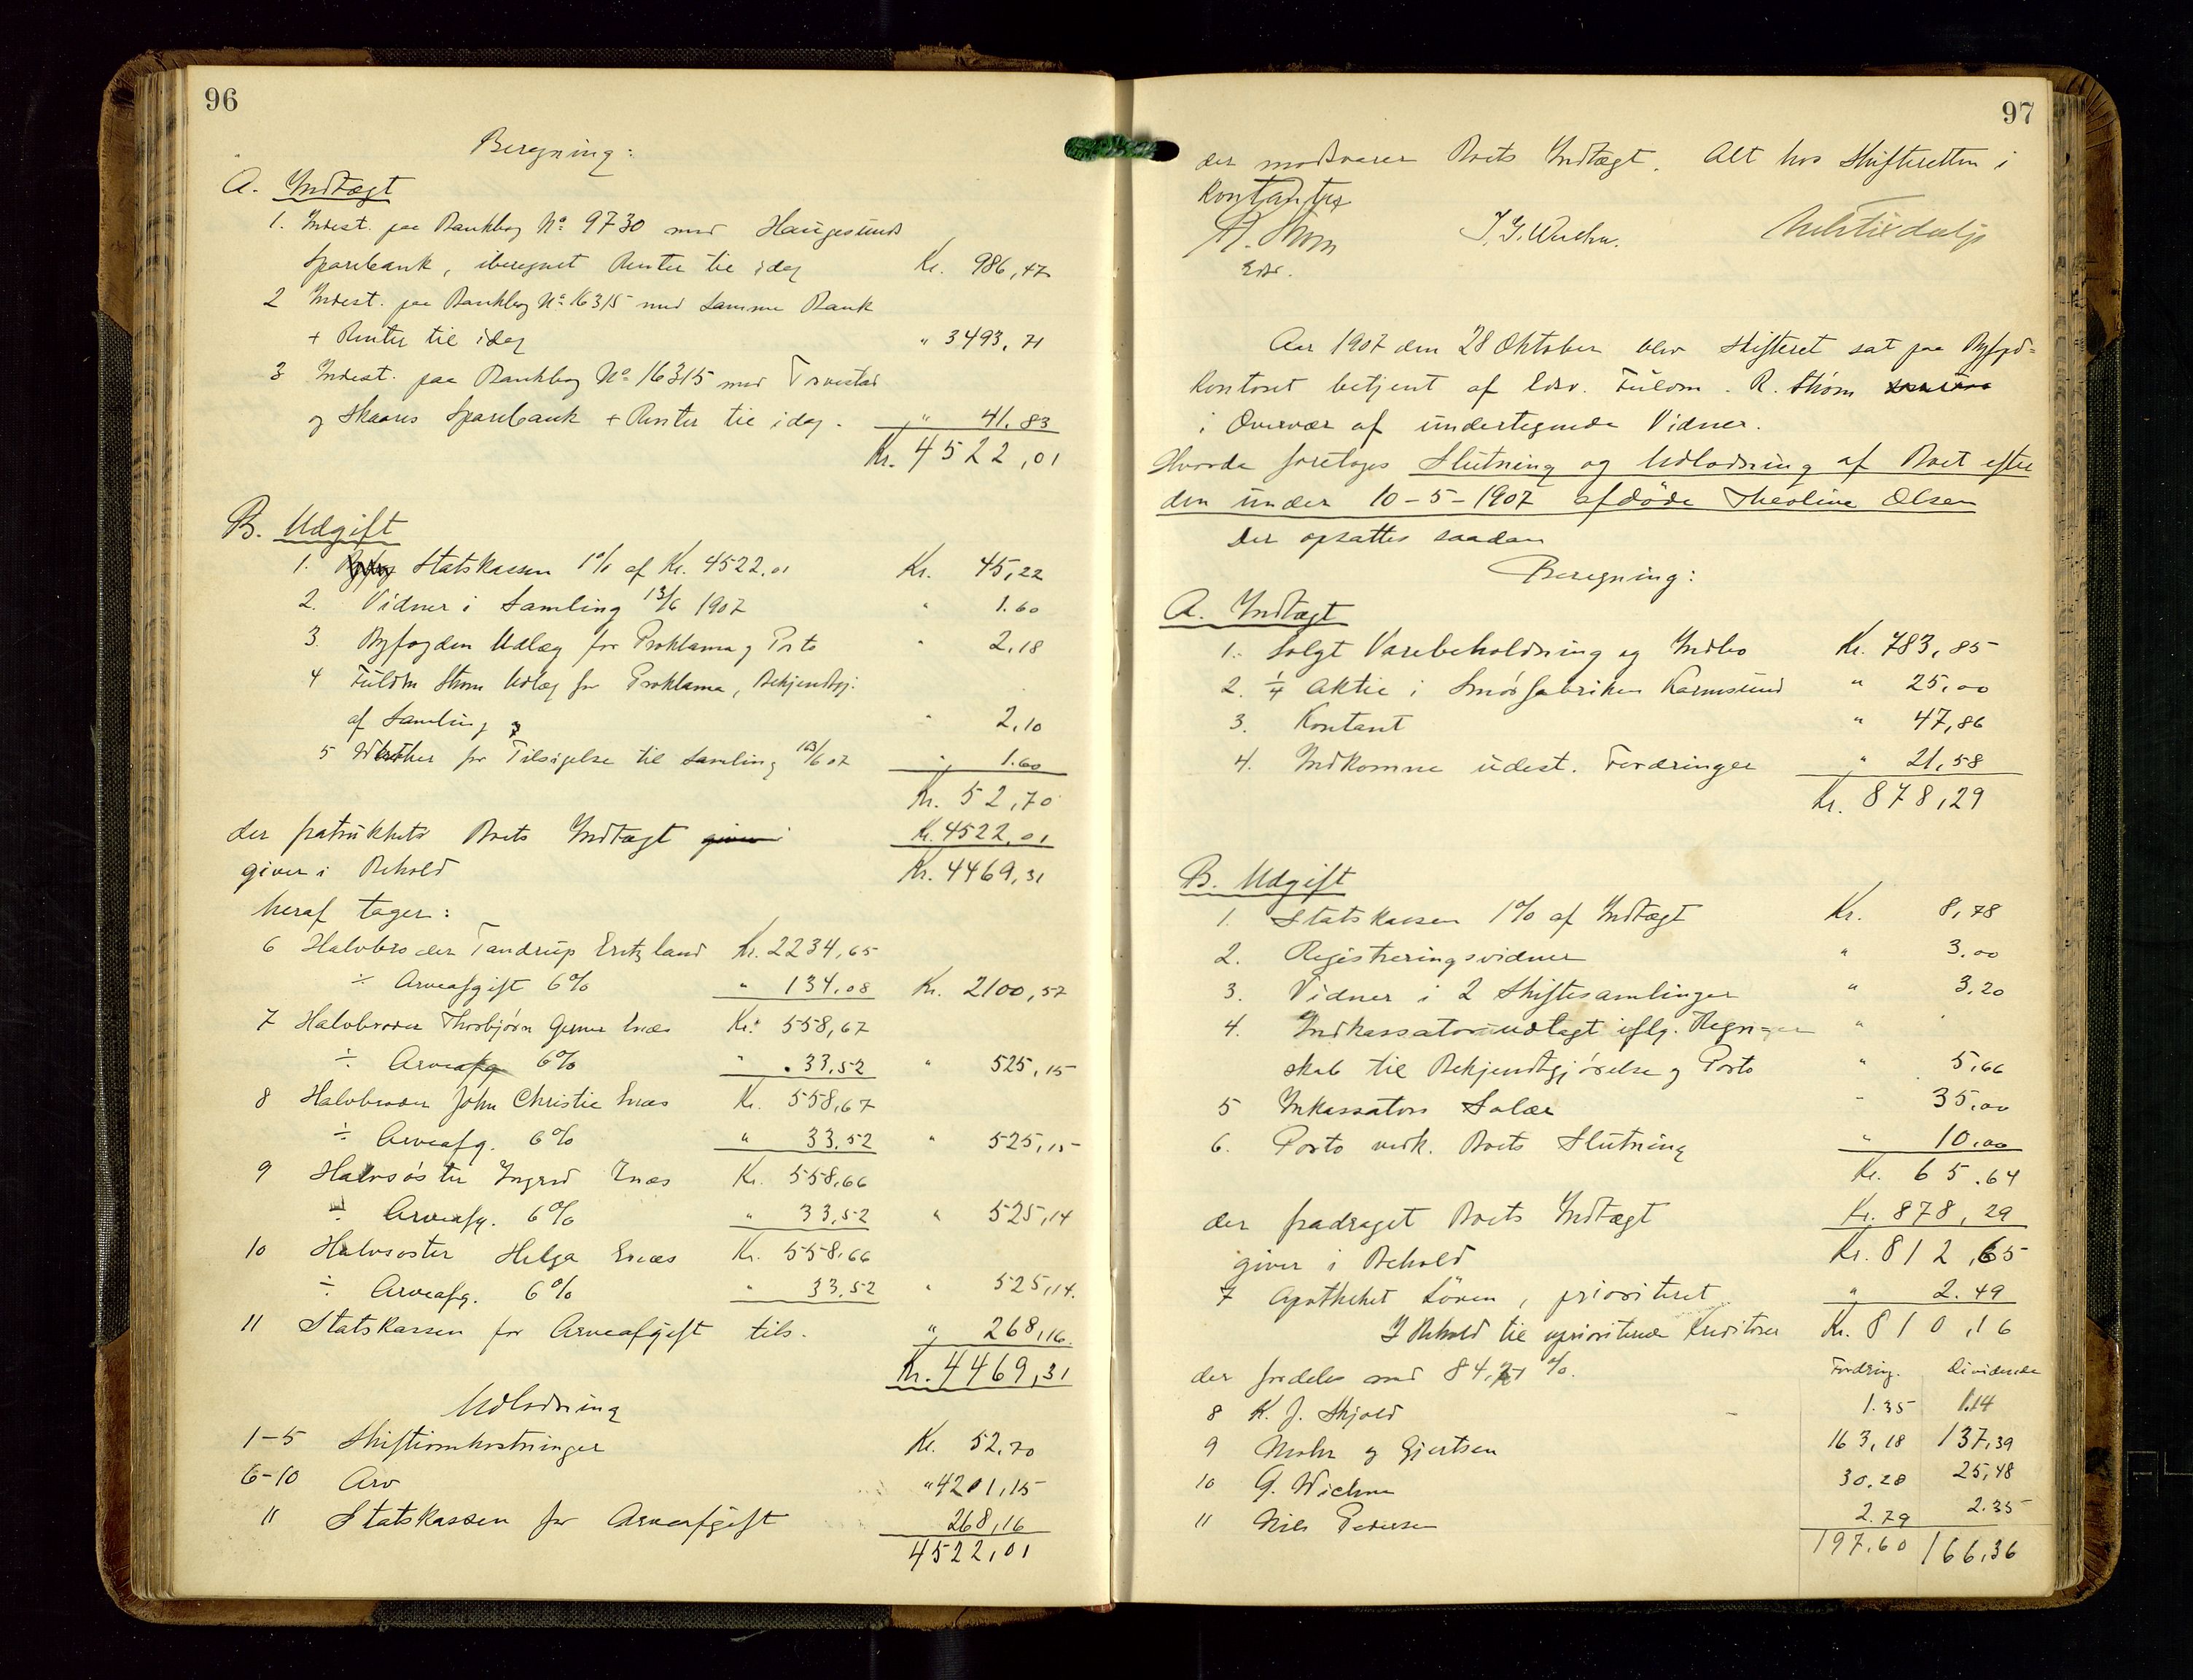 96
Beregning:
A. Indtægt
1. Indest. paa Bankbog No 9730 med Haugesunds
Sparebank, iberegnet Renter til idag Kr. 986,47
2 Indest. paa Bankbog No 16315 med samme Bank
+ Renter til idag " 3493,71
3 Indest. paa Bankbog No 16315 med Torvestad
og Skaares Sparebank + Renter til idag. " 41.83
Kr. 4522,01
B. Udgift
1. Statskassen 1% af Kr. 4522.01 Kr. 45,22
2. Vidner i Samling 13/6 1907 " 1.60
3. Byfogden Udlæg for Proklama og Porto " 2,18
4 Fuldm Strøm Udlæg for Proklama, Bekjendtgj.
af Samling " 2,10
5 for Tilsigelse til Samling 13/6 07 " 1.60
Kr. 52,70
der fratrukket Boets Indtægt giver Kr. 4522.01
giver i Behold Kr. 4469,31
heraf tager:
6 Halvbroder Tandrup Eritzland Kr. 2234,65
÷ Arveafgift 6% " 134.08 Kr. 2100,57
7 Halvbroder Thorbjørn Gerner Enæs Kr. 558,67
÷ Arveafg 6% " 33,52 " 525,15
8 Halvbroder John Christie Enæs Kr. 558,67
÷ Arveafg. 6% " 33.52 " 525,15
9 Halvsøster Ingrid Enæs Kr. 558,66
÷ Arveafg. 6% " 33,52 " 525,14
10 Halvsøster Helga Enæs Kr. 558.66
÷ Arveafg. 6% " 33,52 " 525,14.
11 Statskassen for Arveafgift tils. " 268,16.
Kr. 4469,31
Udlodning
1-5 Skifteomkostninger Kr. 52.70
6-10 Arv " 4201,15
11 Statskassen for Arveafgift 268,16
4522,01
97
der modsvarer Boets Indtægt. Alt hos Skifteretten i
Kontanter
R. Strøm
Edsv.
Aar 1907 den 28 Oktober blev Skifteret sat paa Byfgd=
kontoret betjent af edsv. Fuldm. R. Strøm
i Overvær af undertegnede Vidner.
Hvorda foretoges Slutning og Udlodning af Boet efter
den under 10-5-1907 afdøde Theoline Olsen
Der opsattes saadan
Beregning:
A. Indtægt
1. Solgt Varebeholdning og Indbo Kr. 783,85
2. 1/4 Aktie i Smørfabriken Karmsund " 25,00
3. Kontant " 47,86
4. Indkomne udest. Fordringer " 21,58
Kr. 878,29
B. Udgift
1. Statskassen 1% af Indtægt Kr. 8,78
2. Registreringsvidner " 3.00
3. Vidner i 2 Skiftesamlinger " 3,20
4. Indkassators udlagt iflg. Regn- "
skab til Bekjendtgjørelse og Porto " 5,66
5 Inkassators Salær " 35,00
6. Porto vedk. Boets Slutning " 10,00
Kr. 65.64
der fradraget Boets Indtægt Kr. 878,29
giver i Behold Kr. 812,65
7 Apotheket Löven, prioriteret " 2.49
I Behold til uprioriterede Kreditorer Kr. 810,16
der fordeles med 84,21 %. Fordring. Dividende
8 K. J. Skjold 1.35 1.14
9 Mohr og Gjertsen 163,18 137,39
10 G. Wichne 30.28 25,48
11 Nils Pedersen 2.79 2.35
197.60 166,36